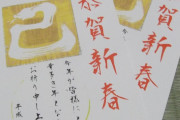 恭賀新春
賀新春
巳
今年が皆様に
幸多き年と
お祈り申し上
平成